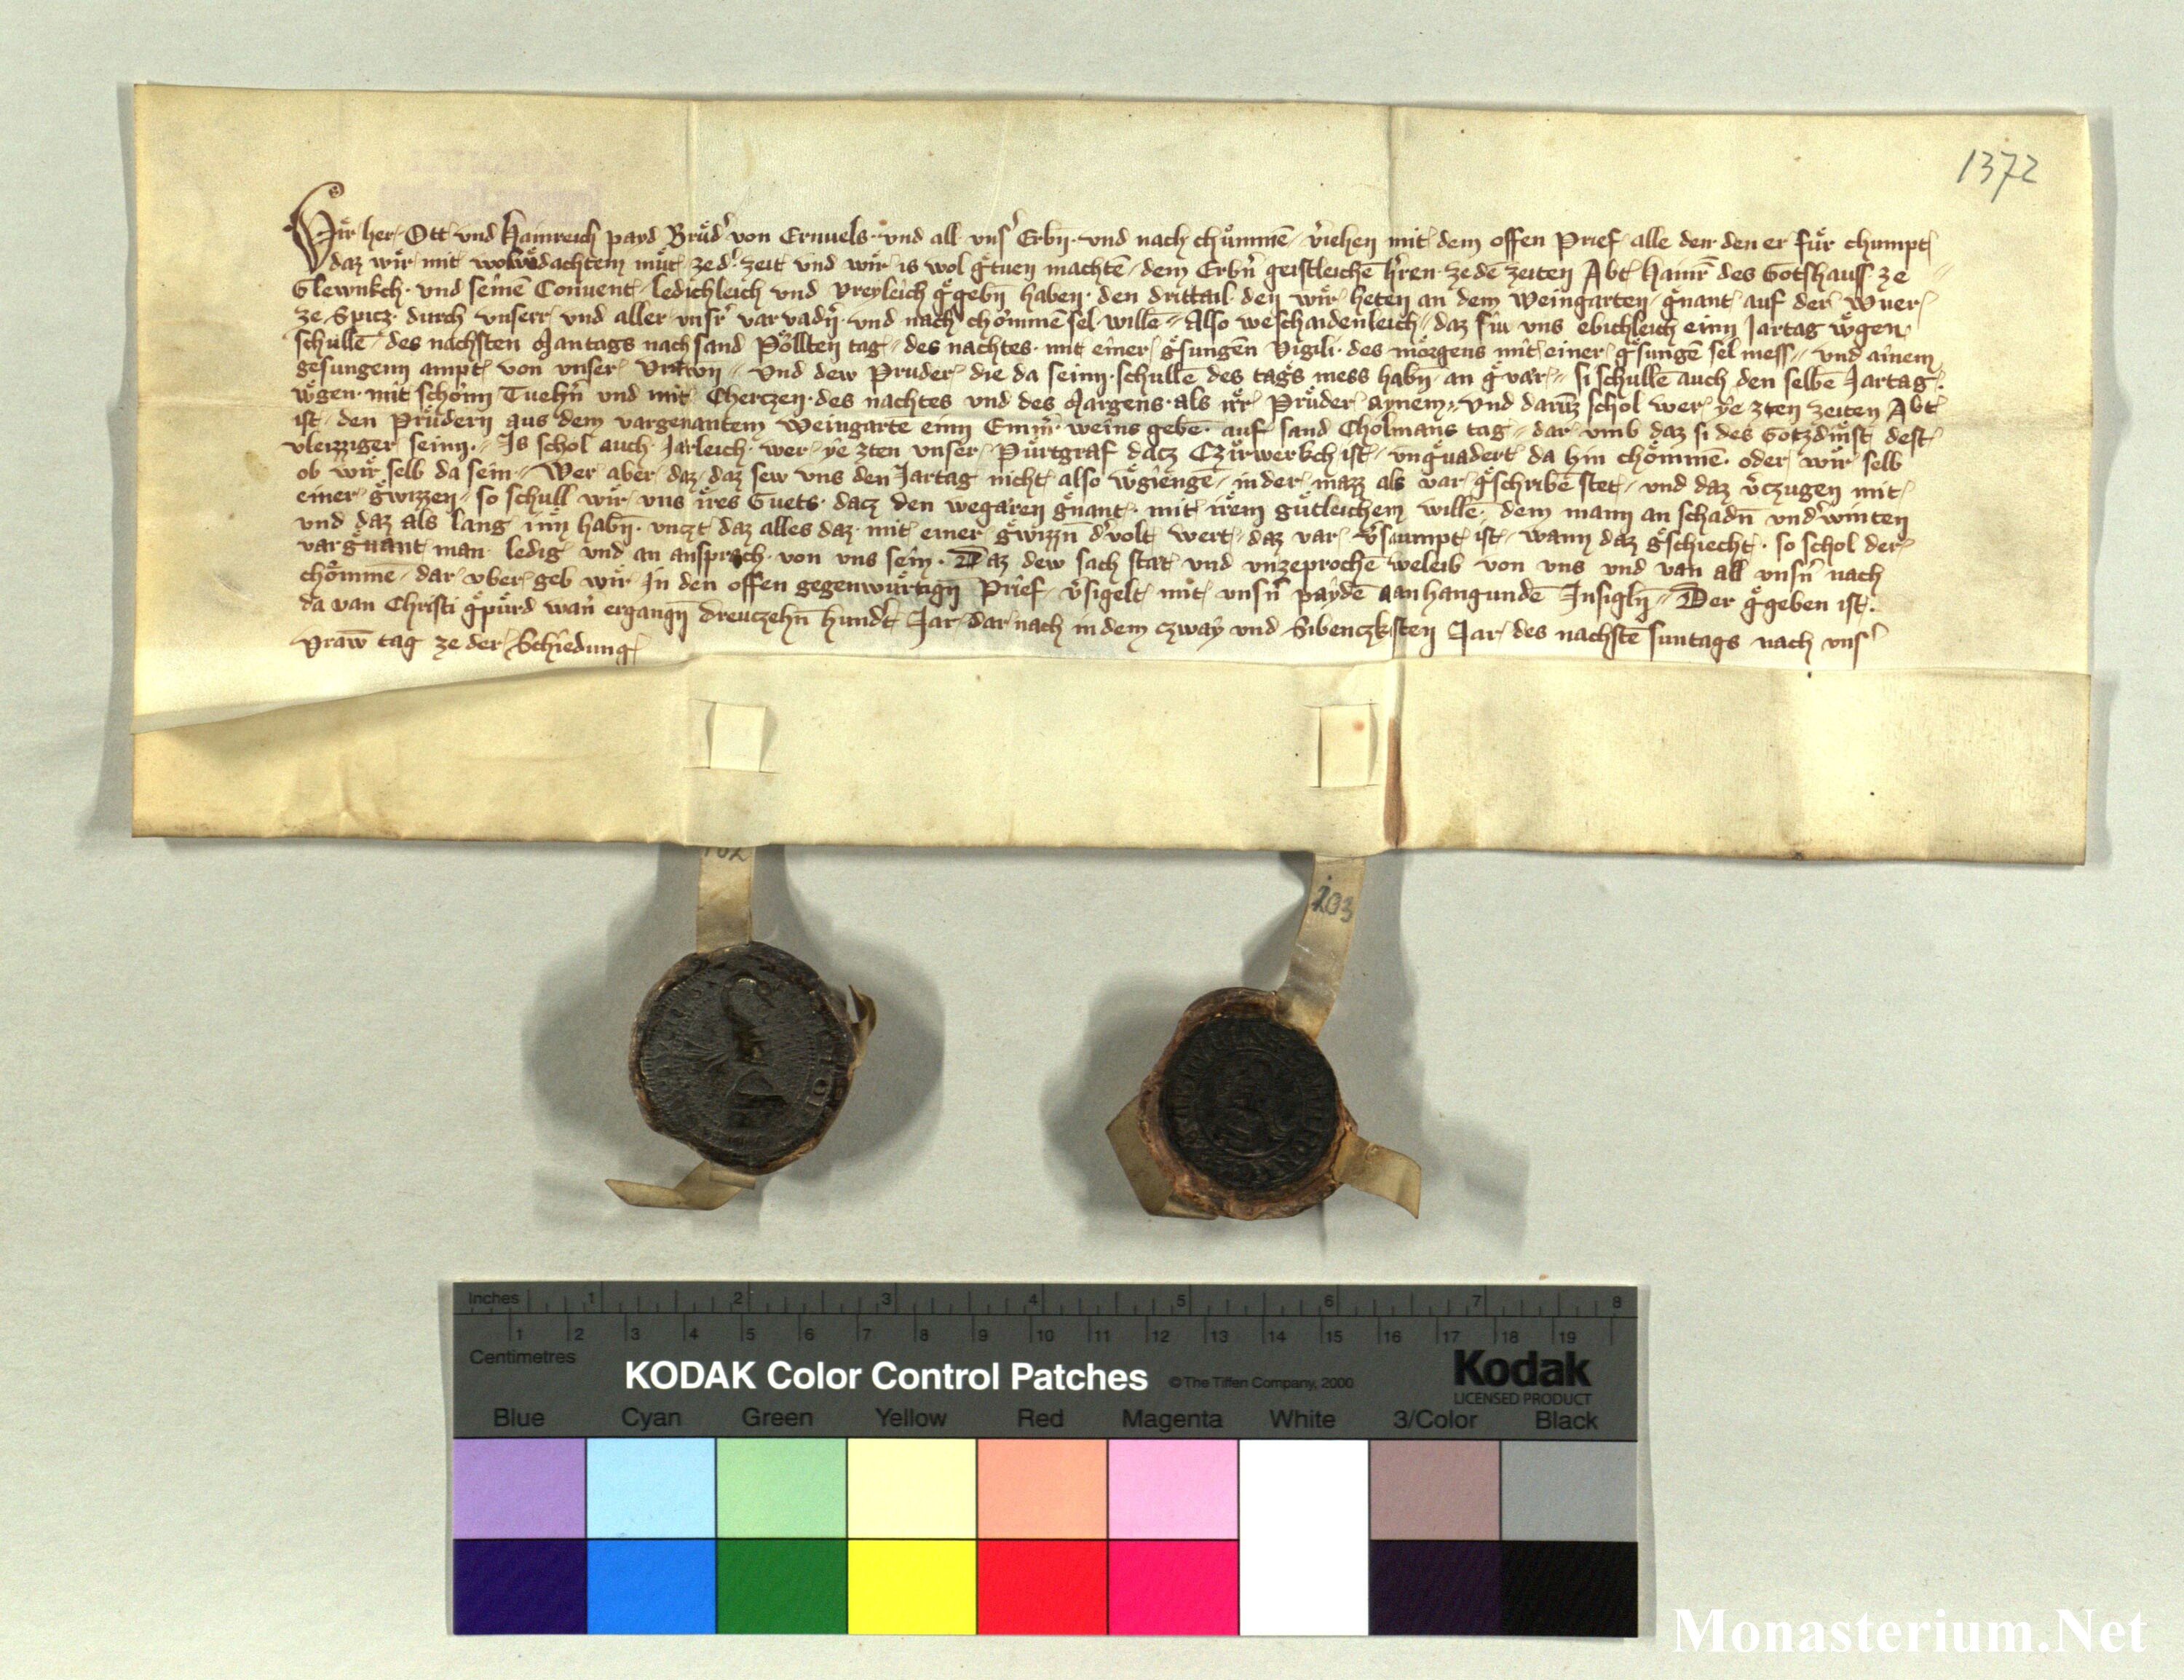 1372
Wir her Ott und Hainreich payd Brůdˀ von Ernvels und all unsˀ Erbn̄ und nach chůmmē v̓iehen mit dem offen Prief alle den den er fůr chumpt
daz wir mit wolwedachtem můt zedˀ zeit und wir is wol getuen machtē dem Erbn̄ geistleichē h̓ren zedē zeiten Abt Hainr̄ des Gotshauss ze
Glewnkch und seinē Convent ledichleich und vreyleich gegebn̄ haben den drittail den wir heten an dem weingarten genant auf der Wuer
ze Spicz durch unserr und aller unsr̓ varvadn̄ und nach chömmē sel willē Also weschaidenleich daz siu uns ebichleich einn Jartag wegen
schullē des nachsten Mantags nach sand Pölltten tag des nachtes mit einer gesungen Vigili des morgens mit einer gesungē sel mess und ainem
gesungenn ampt von unser vrawn und dew Pruder die da seinn schullē des tags mess habn̄ an gevar si schullē auch den selbē Jartag
wegen mit schönn Tuehn̄ und mit Cherczen des nachtes und des Margens als irr Průder aynem und darůz schol wer ye zten zeiten Abt
ist den Průdern aus dem vargenantem Weingarte einn Emm̓ weins gebē auf sand Cholmans tag dar umb daz si des Gotzdinst dest
vleizziger seinn Is schol auch Jarleich wer ye zten unser Půrtgraf dacz Czirwerkch ist ungevadert da hin chömmē oder wir selb
ob wir selb da sein Wer aber daz daz sew uns den Jartag nicht also wegiengē in der mazz als var geschribē stet und daz v̓czugen mit
einer gewizzen so schull wir uns ires Guets dacz den wegaren genant mit irem gůtleichem willē dem mann an schadn̄ underwinten
und daz als lang inn habn̄ unczt daz alles daz mit einer gewizzn̄ d̓volt wert daz var v̓saumpt ist wann daz geschiecht so schol der
vargenant man ledig und an ansprach von uns sein Daz dew sach stat und unzeprochē weleib von uns und van all unsn̓ nach
chömmē dar uber geb wir in den offen gegenwůrtign̄ Prief v̓sigelt mit unsn̓ paydē anhangundē Insigln̄ Der gegeben ist
da van Christi gepůrd warn̄ ergangn̄ dreuczehn̄ hundt̓ Jar dar nach in dem czway und Sibenczkisten Jar des nachstē suntags nach unsˀ
vraw̄ tag ze der Schiedung
102
103
Inches 1 2 3 4 5 6 7 8
1 2 3 4 5 6 7 8 9 10 11 12 13 14 15 16 17 18 19
Centimetres
KODAK Color Control Patches ©The Tiffen Company, 2000 Kodak
LICENSED PRODUCT
Blue Cyan Green Yellow Red Magenta White 3/Color Black
Monasterium.Net